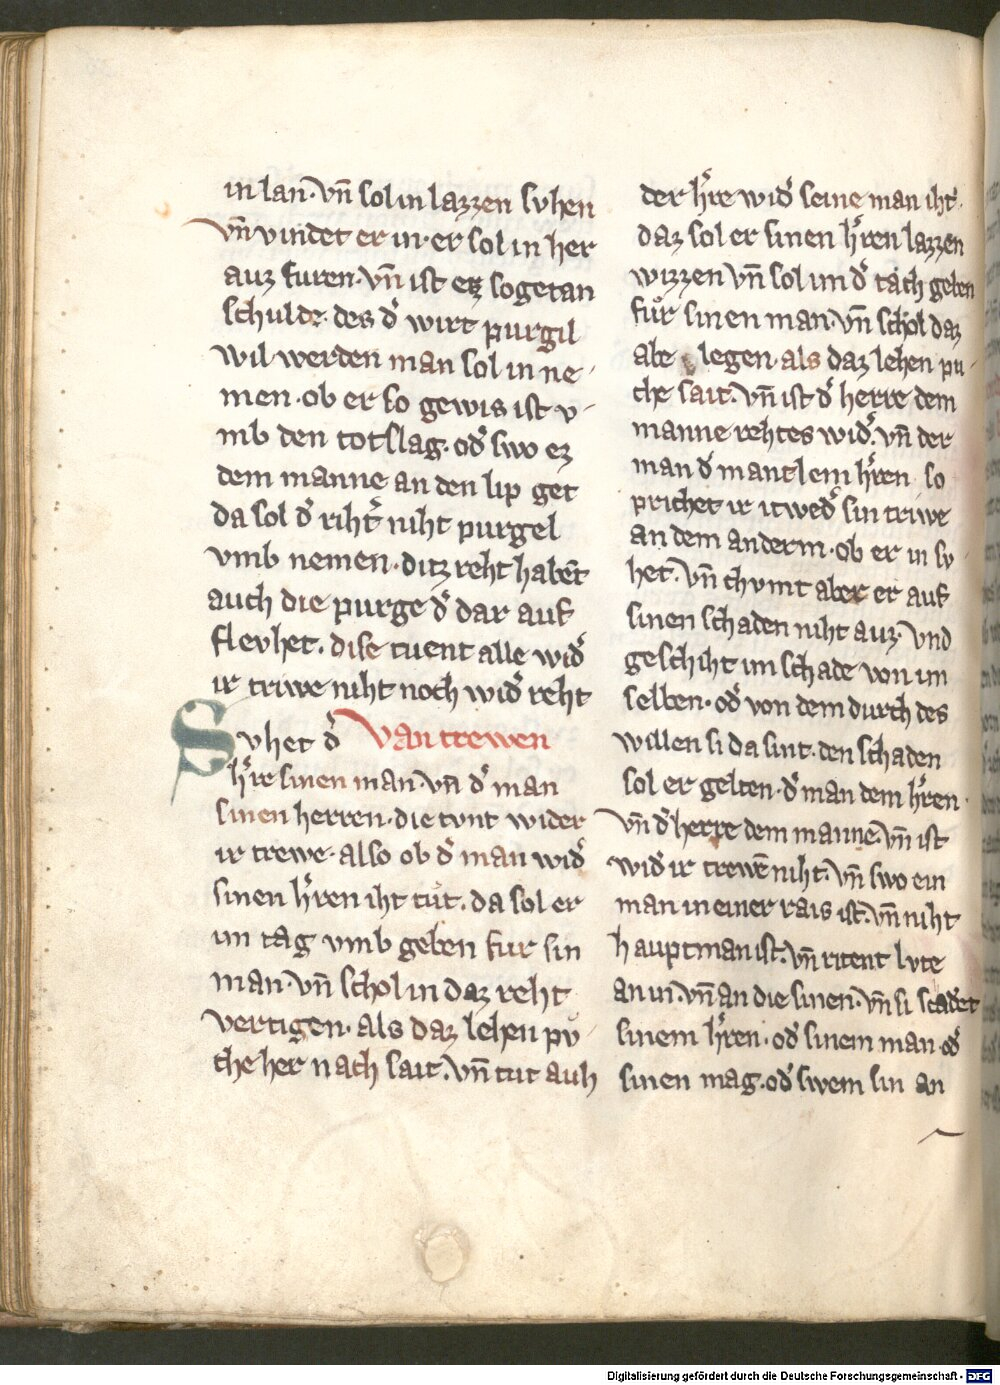 in lan· vn̄ sol in lazzen suhen
vn̄ vindet er in· er sol in her
auz furen· vn̄ ist ez sogetan
schulde· des d̾ wirt purgil
wil werden man sol in ne-
men· ob er so gewis ist v-
mb den totslag· od̾ swo ez
dem manne an den lip get
da sol d̾ riht̾ niht purgel
vmb nemen· ditz reht habēt
auch die purge d̾ dar auf
flevhet· dise tuent alle wid̾
ir triwe niht noch wid̾ reht
Svhet d̾ Van trewen
h̾re sinen man· vn̄ d̾ man
sinen herren· die tvnt wider
ir trewe· also ob d̾ man wid̾
sinen h̾ren iht tut· da sol er
im tag vmb geben fur sin
man· vn̄ schol in daz reht
vertigen· als daz lehen pv-
che her nach sait· vn̄ tut auh
der h̾re wid̾ seine man iht·
daz sol er sinen h̾ren lazzen
wizzen vn̄ sol im d̾ tach geben
fuͦr sinen man· vn̄ schol daz
abe legen· als daz lehen pu-
che sait· vn̄ ist d̾ herre dem
manne rehtes wid̾· vn̄ der
man d̾ mantlem h̾ren so
prichet ir itwed̾ sin triwe
an dem anderm· ob er in sv
het· vn̄ chvmt aber er auf
sinen schaden niht auz· vnd
geschiht im schade von im
selben· od̾ von dem durch des
willen si da sint· den schaden
sol er gelten· d̾ man dem h̾ren·
vn̄ d̾ herre dem manne· vn̄ ist
wid̾ ir trewē niht· vn̄ swo ein
man in einer rais ist· vn̄ niht
hauptman ist· vn̄ ritent lvte
an in· vn̄ an die sinen· vn̄ si scad̾et
sinem h̾ren· od̾ sinem man· od̾
sinen mag· od̾ swem sin an
Digitalisierung gefördert durch die Deutsche Forschungsgemeinschaft - DFG